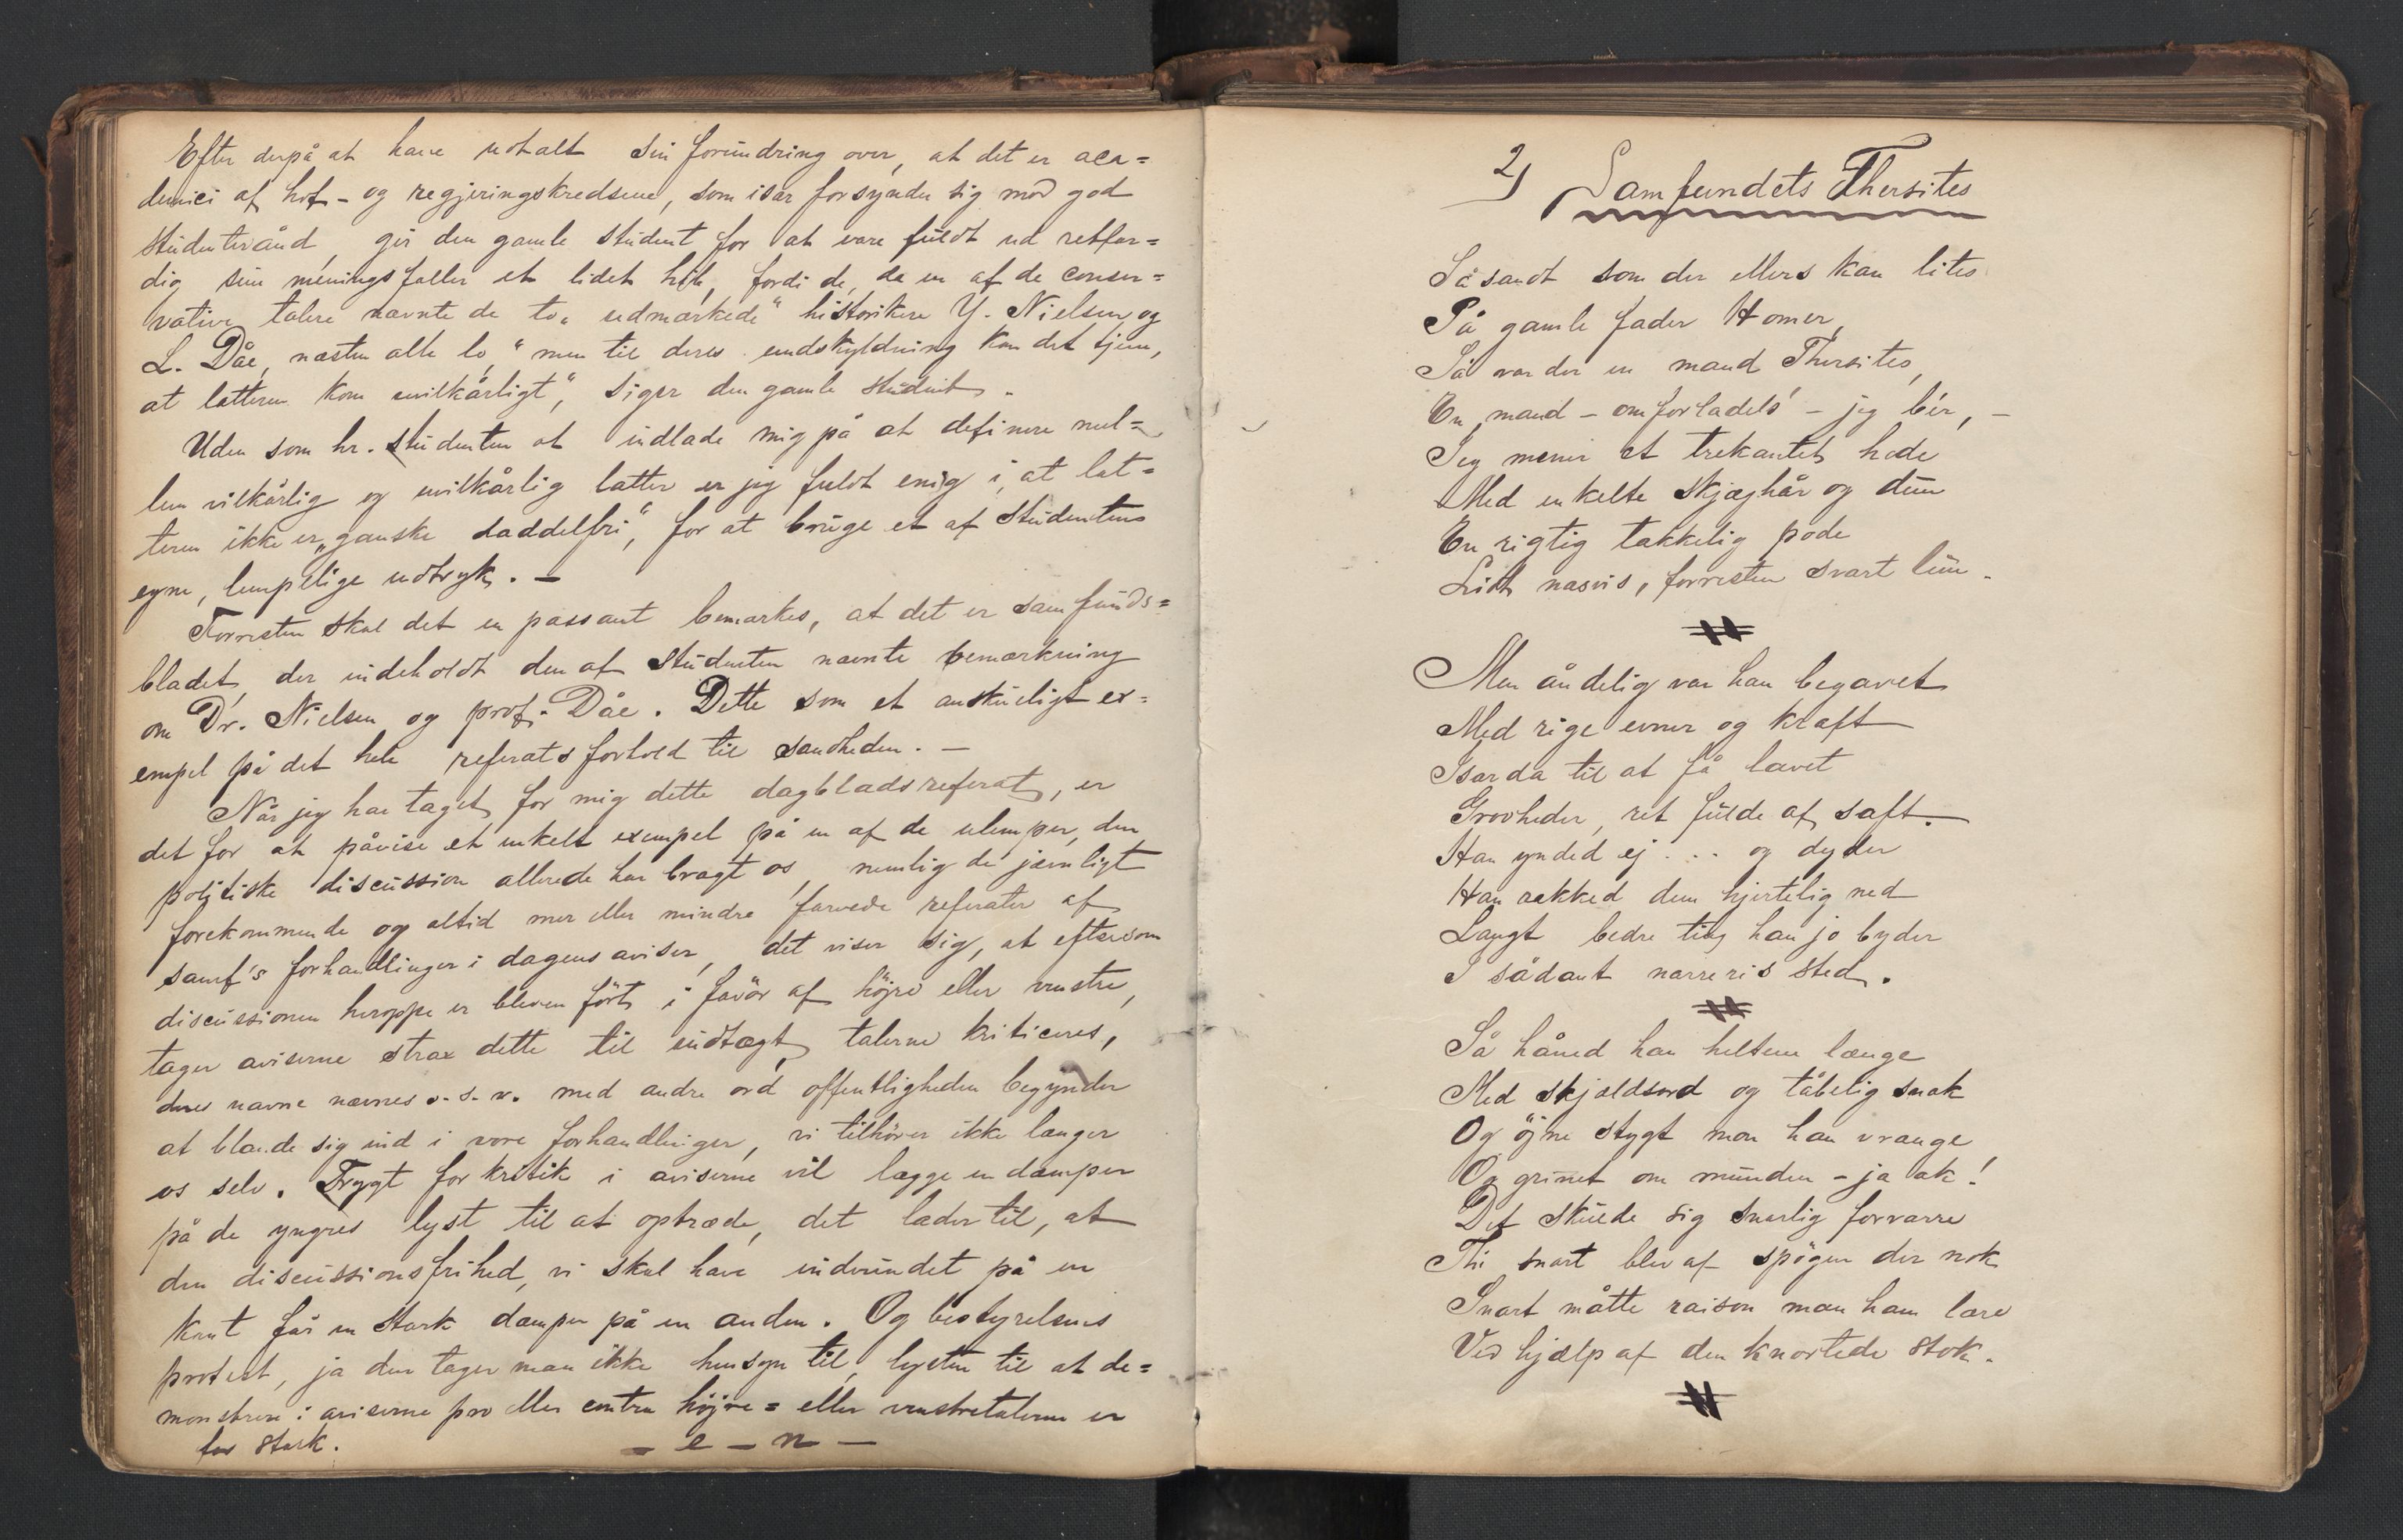 Efter derpå at have udtalt sin forundring over, at det er aca=
demici af hof- og regjeringskredsene, som især forsynder sig mod god
studenterånd, gir den gamle student for at være fuldt ud retfær=
dig sine meningsfæller et lidet hib, fordi de, da en af de conser=
vative talere nævnte de to „udmærkede“ historikere Y. Nielsen og
L. Dåe, næsten alle lo, “men til deres undskyldning kan det tjene,
at latteren kom uvilkårligt“, siger den gamle student.
Uden som hr. studenten at indlade mig på at definere mel=
lem vilkårlig og uvilkårlig latter er jeg fuldt enig i, at lat=
teren ikke er „ganske daddelfri“, for at bruge et af studentens
egne, lempelige udtryk. —
Forresten skal det en passant bemærkes, at det er samfunds=
bladet, der indeholdt den af studenten nævnte bemærkning
om Dr. Nielsen og prof. Dåe. Dette som et anskueligt ex=
empel på det hele referats forhold til sandheden. —
Når jeg har taget for mig dette dagbladsreferat, er
det for at påvise et enkelt exempel på en af de ulemper, den
politiske discussion allerede har bragt os, nemlig de jævnligt
forekommende og altid mer eller mindre farvede referater af
samf's forhandlinger i dagens aviser, det viser sig, at eftersom
discussionen heroppe er bleven ført i favör af höjre eller venstre,
tager aviserne strax dette til indtægt, talerne kriticeres,
deres navne nævnes o. s. v. med andre ord offentligheden begynder
at blande sig ind i vore forhandlinger, vi tilhörer ikke længer
os selv. Frygt for kritik i aviserne vil lægge en dæmper
på de yngres lyst til at optræde, det lader til, at
den discussionsfrihed, vi skal have indvundet på en
kant får en stærk dæmper på en anden. Og bestyrelsens
protest, ja den tager man ikke hensyn til, lysten til at de=
monstrere i aviserne pro eller contra höjre= eller venstretalerne er
for stærk.
— e — n —
2) Samfundets Thersites
Så sandt som der ellers kan lites
På gamle fader Homer,
Så var der en mand Thersites,
En mand – om forladels' – jeg bér, –
Jeg mener et trekantet hode
Med enkelte skjæghår og dun
En rigtig takkelig pode
Lidt næsvis, forresten svart lun.
Men åndelig var han begavet
Med rige evner og kraft
Især da til at få lavet
Grovheder, ret fulde af saft.
Han ynded ej . . . og dyder
Han rakked dem hjertelig ned
Langt bedre ting han jo byder
I sådant narreris sted.
Så håned han heltene længe
Med skjældsord og tåbelig snak
Og öjne stygt mon han vrænge
Og grinet om munden – ja ak!
Det skulde sig snarlig forværre
Thi snart blev af spögen der nok
Snart måtte raison man ham lære
Ved hjælp af den knortede stok.